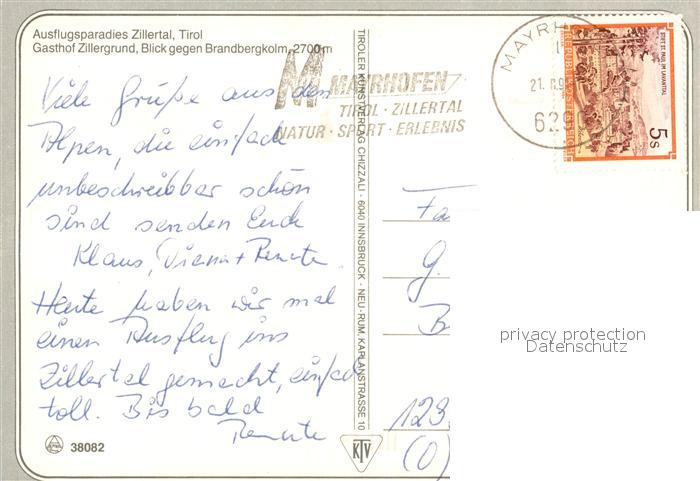 Ausflugsparadies Zillertal, Tirol
Gasthof Zillergrund, Blick gegen Brandbergkolm, 2700m
Viele Grüße aus den
Alpen, die einfach
unbeschreibbar schön
sind senden Euch
Klaus, + Renate
Heute haben wir mal
einen Ausflug ins
Zillertal gemacht, einfach
toll. Bis bald
Renate
38082
TIROLER KUNSTVERLAG CHIZZALI · 6040 INNSBRUCK · NEU-RUM, KAPLANSTRASSE 10
KTV
M MAYRHOFEN
TIROL · ZILLERTAL
NATUR · SPORT · ERLEBNIS
MAYRH
21.
62
STIFT ST. PAUL IM LAVANTTAL
REPUBLIK ÖSTERREICH
5 S
Fa
G.
B
123
(0)
privacy protection
Datenschutz